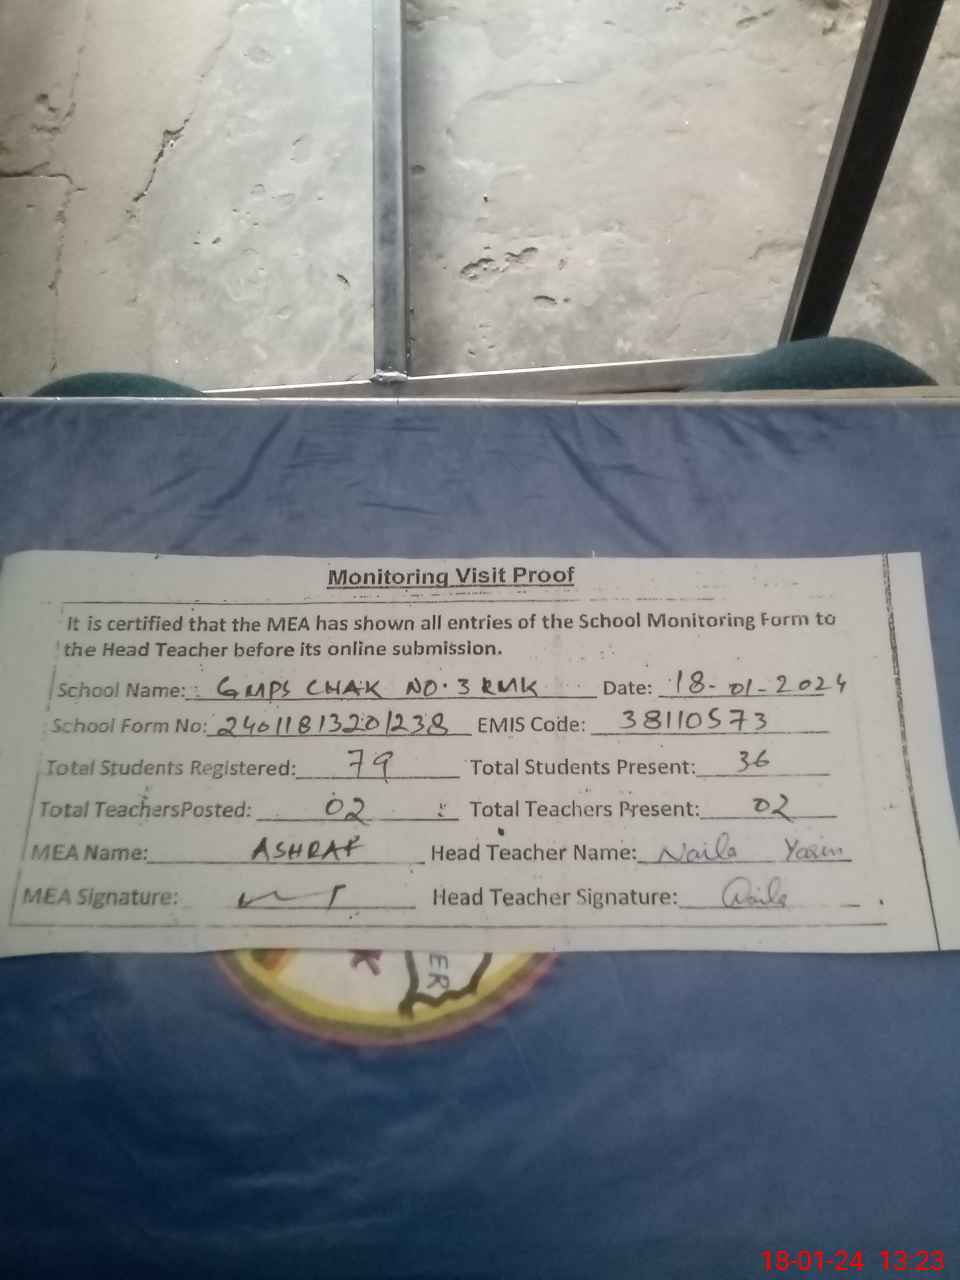 Monitoring Visit Proof
It is certified that the MEA has shown all entries of the School Monitoring Form to
the Head Teacher before its online submission.
School Name: GMPS CHAK NO.3 RMK Date: 18-01-2024
School Form No: 24011813201238 EMIS Code: 38110573
Total Students Registered: 79 Total Students Present: 36
Total TeachersPosted: 02 Total Teachers Present: 02
MEA Name: ASHRAF Head Teacher Name: Naila Yasin
MEA Signature: Head Teacher Signature: Naila
ER
18-01-24 13:23